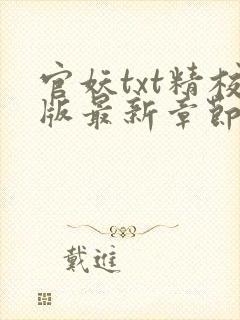 官妖txt精校
版最新章節
戴進